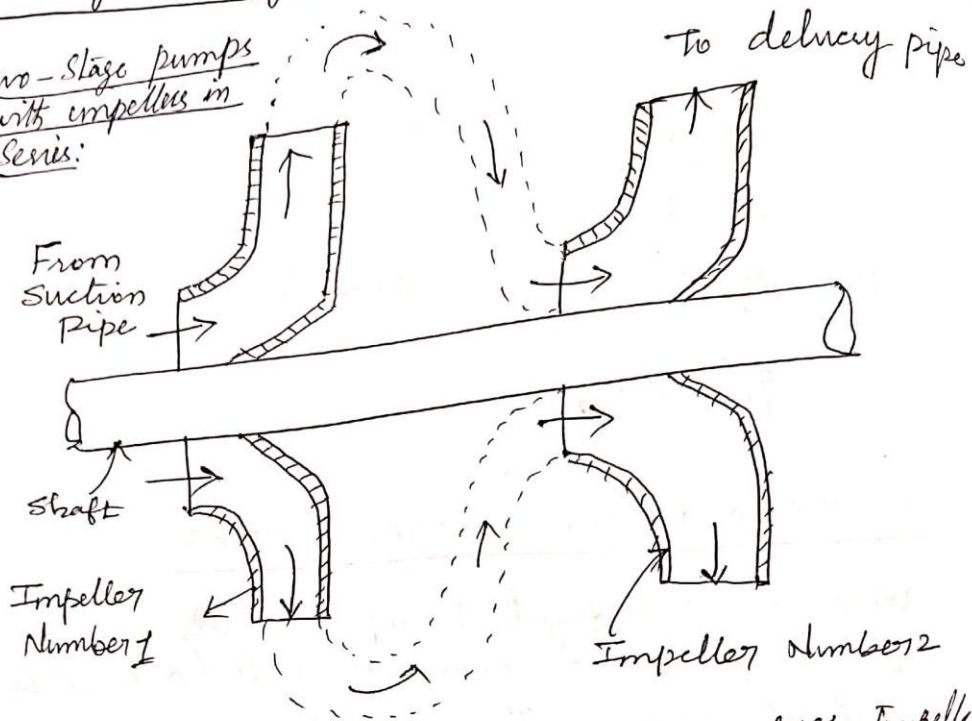 wo-Stage pumps
with impellers in
Series:
To delivery pipe
From
Suction
Pipe
Shaft
Impeller
Number 1
Impeller Number 2
Impelle